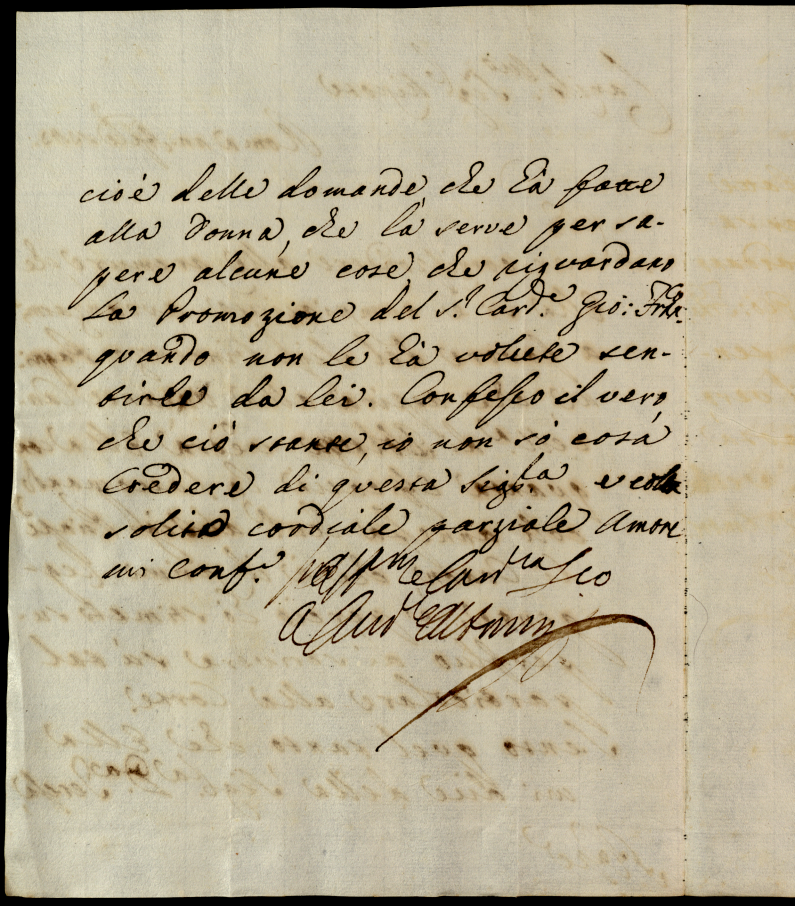 cioè delle domande, che hà fatte
alla Donna, che la serve per sa-
pere alcune cose, che riguardano
la Promozione del S.r Card.e Gio: Fr
quando non le hà volute sen-
tirle da lei. Confesso il vero,
che ciò stante, io non sò cosa
Credere di questa Sig.ra e colla
solita cordiale parziale Amore
mi Conf.o
A